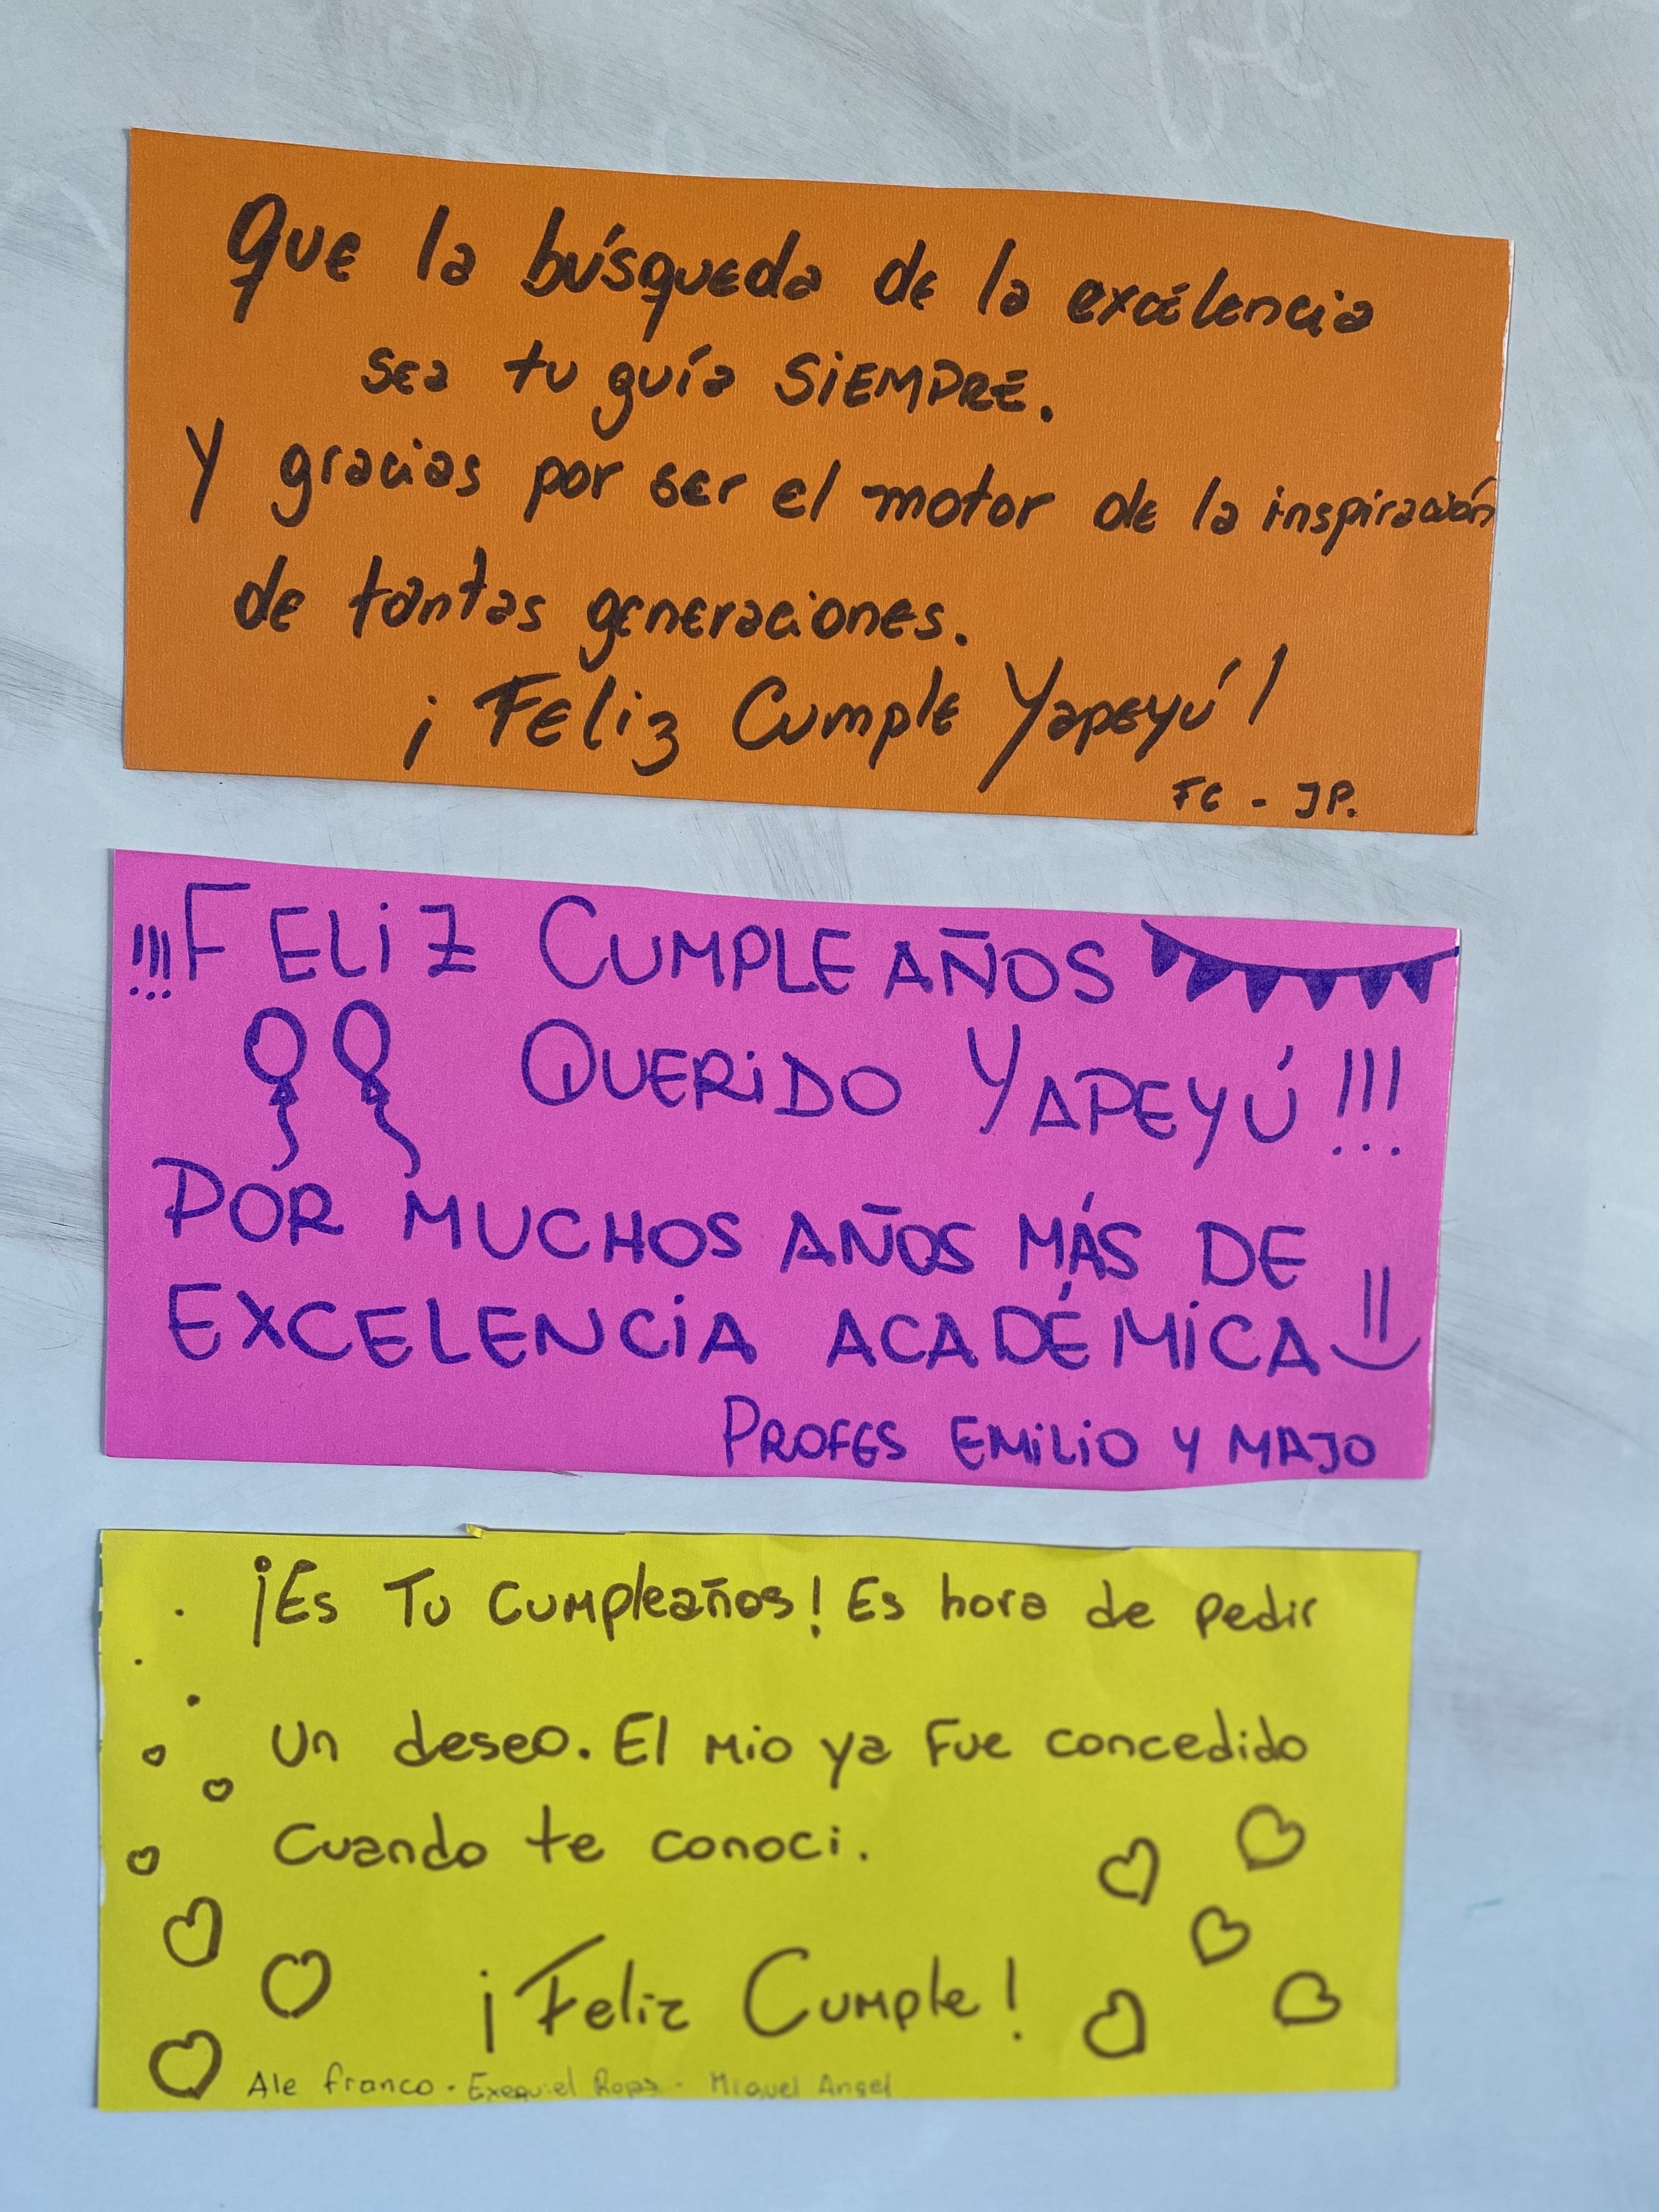 Que la búsqueda de la excelencia
sea tu guía SIEMPRE.
Y gracias por ser el motor de la inspiración
de tantas generaciones.
¡Feliz Cumple Yapeyú!
FC - JP.
¡¡¡FELIZ CUMPLEAÑOS
QUERIDO YAPEYÚ!!!
POR MUCHOS AÑOS MÁS DE
EXCELENCIA ACADÉMICA
PROFES EMILIO Y MAJO
¡Es Tu cumpleaños! Es hora de pedir
un deseo. El mio ya fue concedido
cuando te conoci.
¡Feliz Cumple!
Ale franco - Exequiel - Miguel Angel